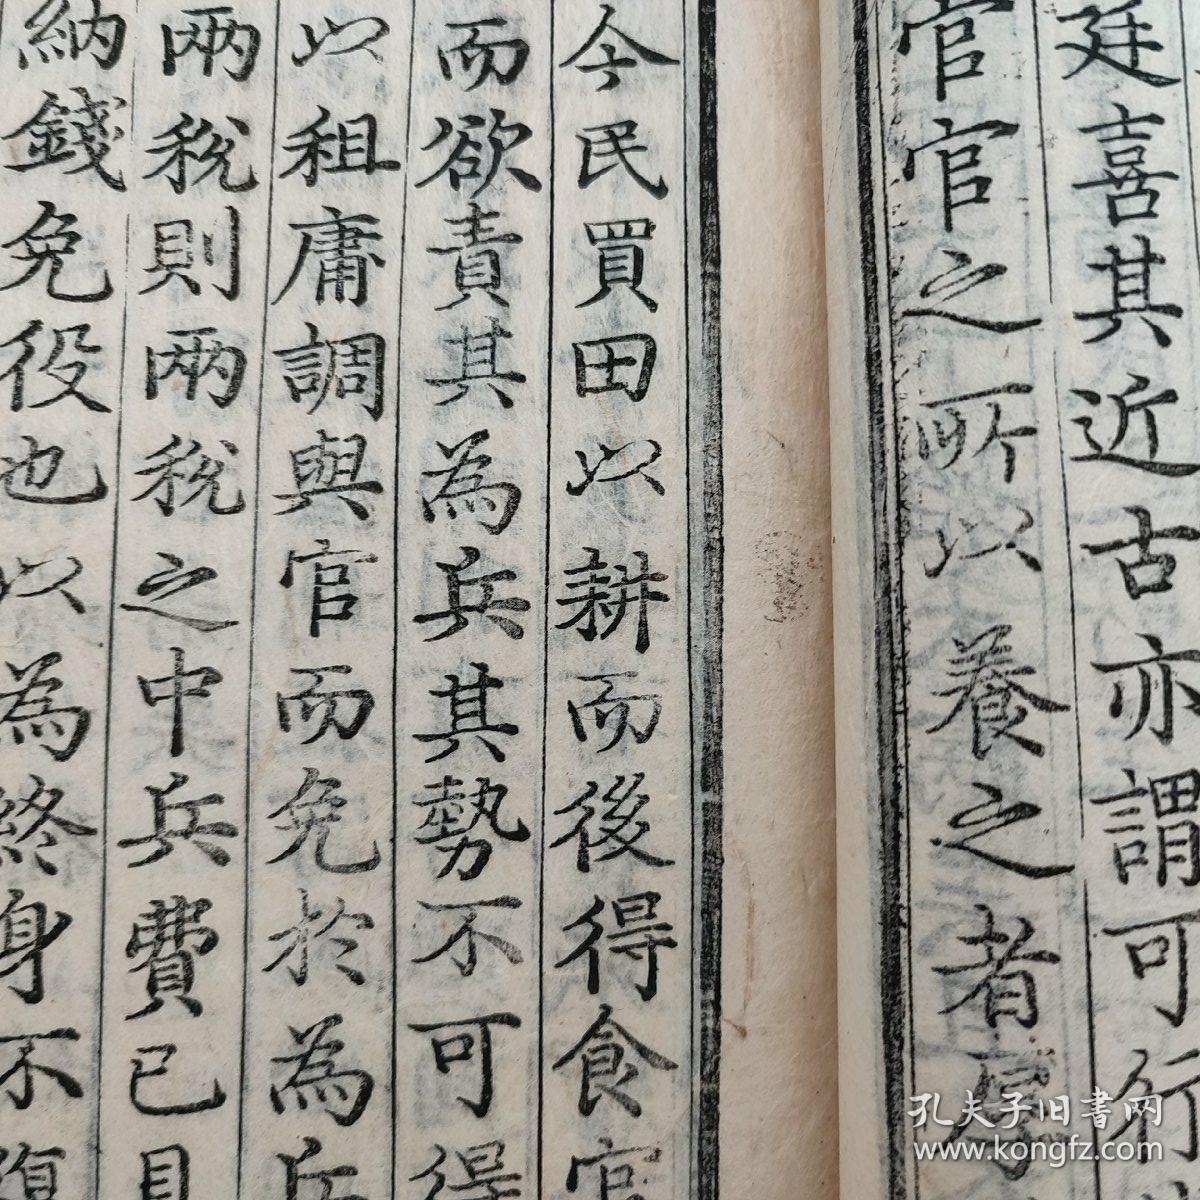 廷喜其近古亦謂可行
官官之所以養之者厚
今民買田以耕而後得食官
而欲責其為兵其勢不可得
以租庸調與官而免於為兵
兩稅則兩稅之中兵費已具
納錢免役也以為終身不復
孔夫子旧書网
www.kongfz.com